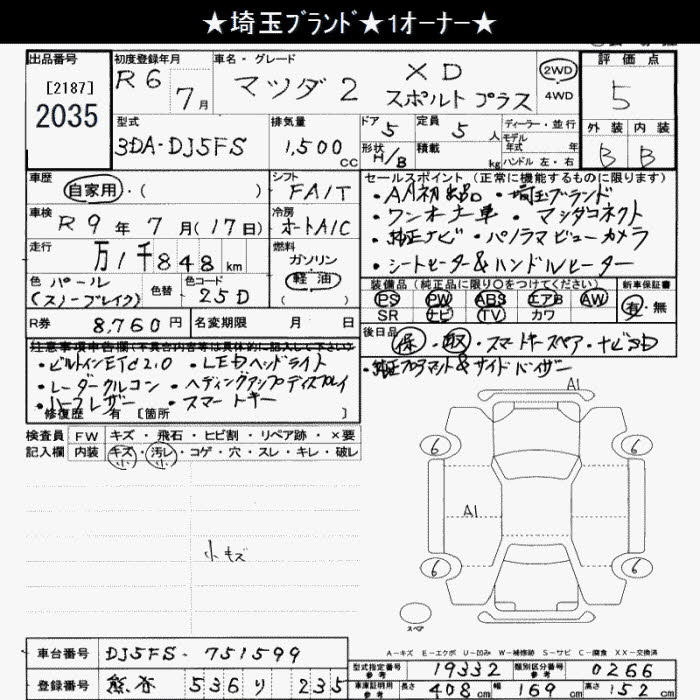 ★埼玉ﾌﾞﾗﾝﾄﾞ★1オーナー★
出品番号 初度登録年月 車名・グレード 評価点
[2187] R6 7月 マツダ2 XD スポルトプラス 2WD 4WD 5
2035
型式 排気量 ドア 定員 ディーラー・並行 外装 内装
3DA-DJ5FS 1,500 cc 5 5人 モデル年式 年 B B
形状 H/B 積載 kg ハンドル 左・右
車歴 シフト セールスポイント (正常に機能するものに限ります)
自家用・( ) FAIT ・AA初出品 ・埼玉ブランド
車検 冷房 ・ワンオーナー車 ・マツダコネクト
R9年7月(17日) オートAIC ・純正ナビ ・パノラマビューカメラ
走行 燃料 ・シートヒーター&ハンドルヒーター
万1千848km ガソリン 軽油
色 パール (スノーフレイク) 色替 色コード 25D
装備品 (純正品に限り○をつけてください) 新車保証書
PS PW ABS エアB AW 有・無
SR ナビ TV カワ
R券 8,760円 名変期限 月 日
後日品 保・取・スマートキースペア・ナビSD
・純正フロアマット&サイドバイザー
注意事項申告欄(不具合内容等は具体的に記入して下さい)
・ビルトインETC2.0 ・LEDヘッドライト
・レーダークルコン ・ヘディングアップディスプレイ
・ハーフレザー ・スマートキー
修復歴 有 [箇所 ]
検査員 FW キズ・飛石・ヒビ割・リペア跡・×要
記入欄 内装 キズ・汚レ・コゲ・穴・スレ・キレ・破レ
小 小
小キズ
A1
6 6
A1
6 6
スペア
A-キズ E-エクボ U-凹み W-補修跡 S-サビ C-腐食 XX-交換済
車台番号 DJ5FS-751599
型式指定番号 参考 19332 類別区分番号 参考 0266
登録番号 熊谷 536 り 235
車庫証明用 参考 長さ 408cm 幅 169cm 高さ 152cm